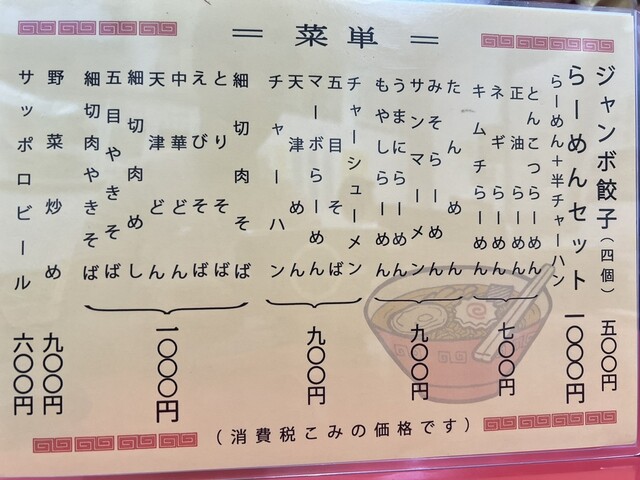 ＝ 菜単 ＝
ジャンボ餃子(四個) 五〇〇円
らーめんセット 一〇〇〇円
らーめん＋半チャーハン
とんこつらーめん
正油らーめん
ネギらーめん
キムチらーめん
七〇〇円
たんめん
みそらーめん
サンマーメン
うまにらーめん
もやしらーめん
九〇〇円
チャーシューメン
五目そば
マーボらーめん
天津めん
チャーハン
九〇〇円
細切肉そば
とりそば
えびそば
中華どん
天津どん
細切肉めし
五目やきそば
細切肉やきそば
一〇〇〇円
野菜炒め 九〇〇円
サッポロビール 六〇〇円
(消費税こみの価格です)